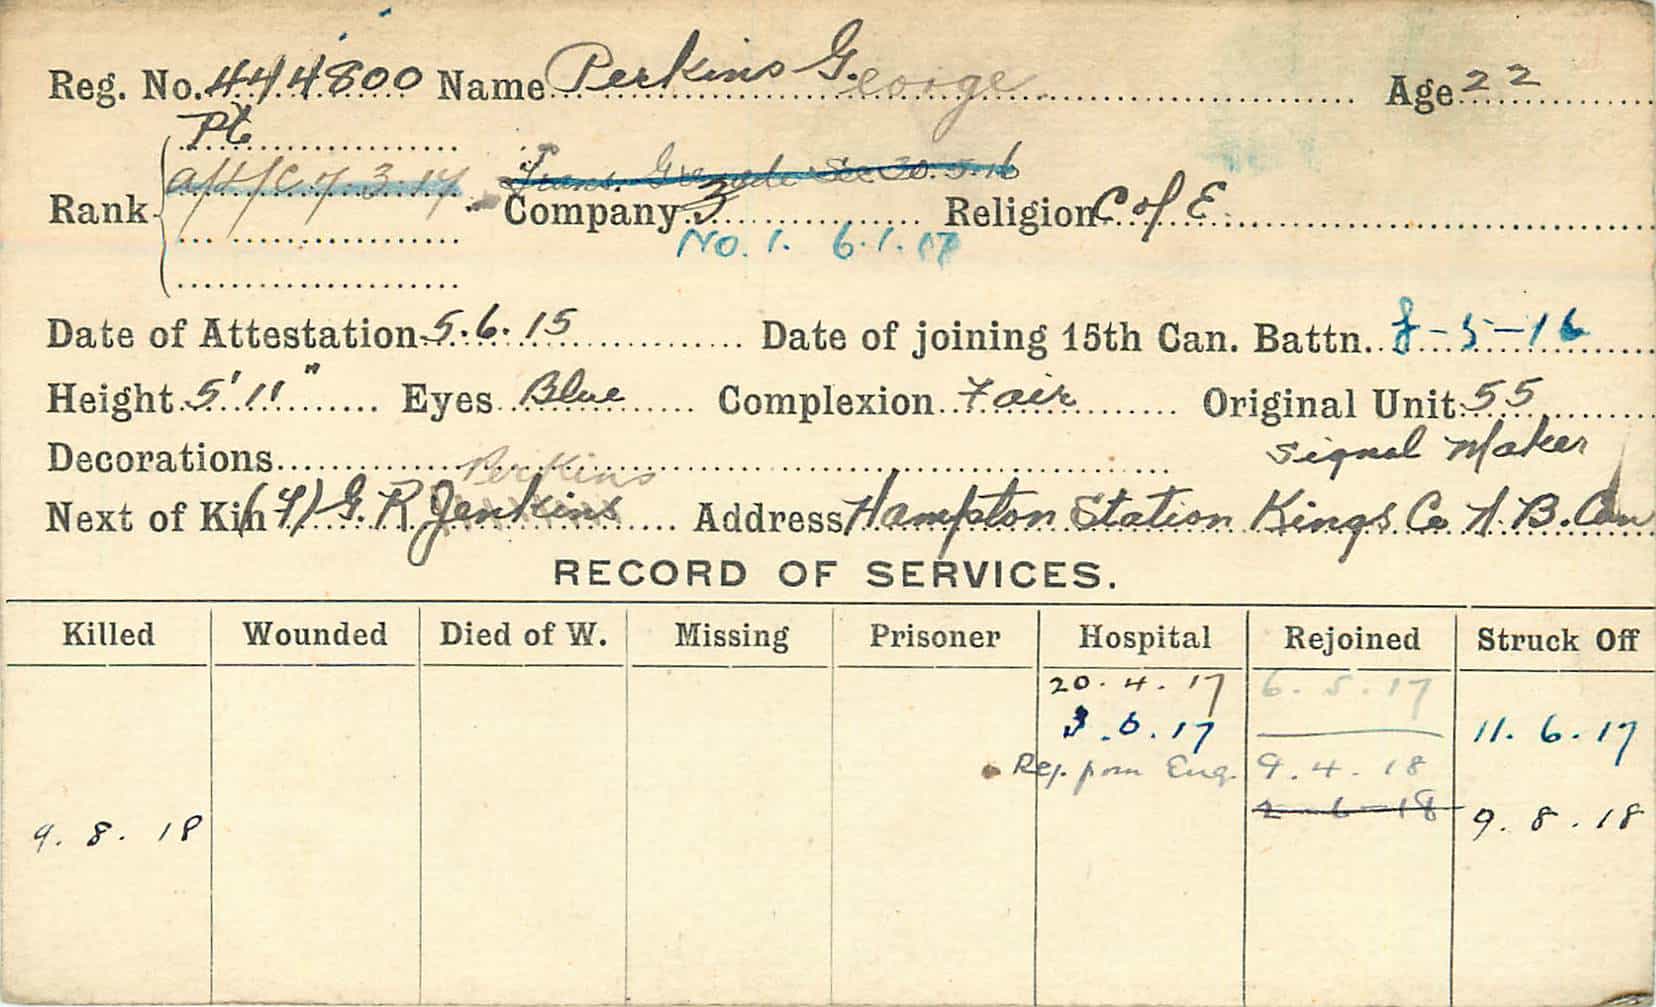 Reg. No. 444800 Name Perkins George Age 22
Pt
Rank
Trans. Grenade Sec 30.5.16
Company 3 Religion C of E
No. 1. 6.1.17
Date of Attestation 5.6.15 Date of joining 15th Can. Battn. 8-5-16
Height 5' 11" Eyes Blue Complexion Fair Original Unit 55
Decorations Signal Maker
Perkins
Next of Kin (F) G. R Jenkins Address Hampton Station Kings Co N.B. Can
RECORD OF SERVICES.
Killed Wounded Died of W. Missing Prisoner Hospital Rejoined Struck Off
20.4.17 6.5.17
3.6.17 11.6.17
Rej. from Eng. 9.4.18
2-6-18
9.8.18 9.8.18